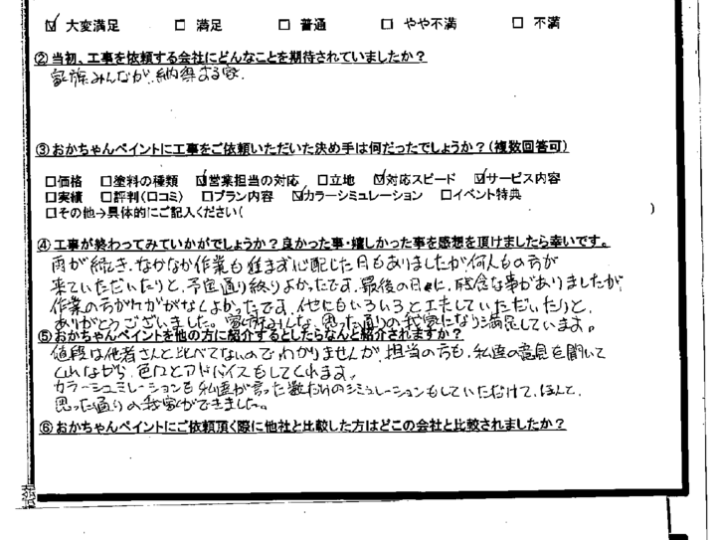 ☑ 大変満足 □ 満足 □ 普通 □ やや不満 □ 不満
②当初、工事を依頼する会社にどんなことを期待されていましたか？
家族みんなが、納得する家.
③おかちゃんペイントに工事をご依頼いただいた決め手は何だったでしょうか？(複数回答可)
□価格 □塗料の種類 ☑営業担当の対応 □立地 ☑対応スピード ☑サービス内容
□実績 □評判(口コミ) □プラン内容 ☑カラーシミュレーション □イベント特典
□その他→具体的にご記入ください( )
④工事が終わってみていかがでしょうか？良かった事・嬉しかった事を感想を頂けましたら幸いです。
雨が続き、なかなか作業も進まず心配した日もありましたが、何人もの方が
来ていただいたりと、予定通り終りよかったです。最後の日に、残念な事がありましたが、
作業の方がケガがなくよかったです。他にもいろいろと工夫していただいたりと、
ありがとうございました。家族みんな、思った通りの我家になり満足しています。
⑤おかちゃんペイントを他の方に紹介するとしたらなんと紹介されますか？
値段は他者さんと比べてないのでわかりませんが、担当の方も、私達の意見を聞いて
くれながら、色々とアドバイスもしてくれます。
カラーシュミレーションも私達が言った数だけのシミュレーションもしていただけて、ほんと、
思った通りの我家ができました。
⑥おかちゃんペイントにご依頼頂く際に他社と比較した方はどこの会社と比較されましたか？